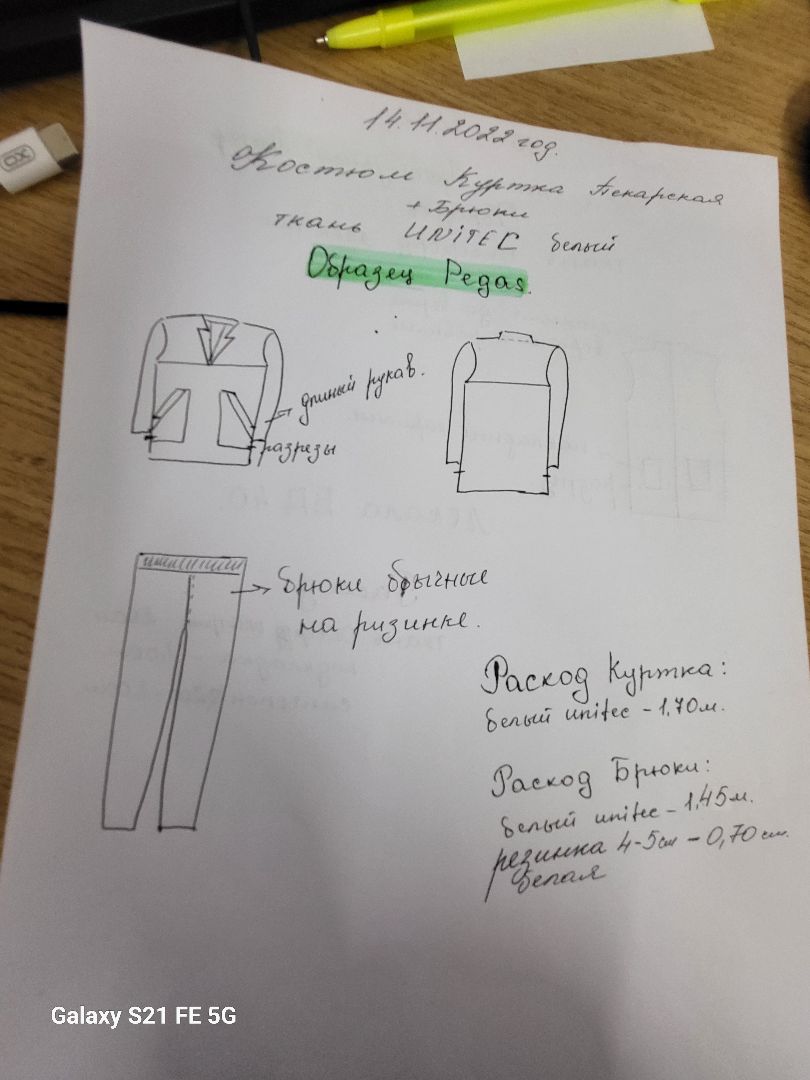 14.11.2022 год.
Костюм Куртка Пекарская
+ Брюки
ткань UNITEC белый
Образец Pegas.
длиный рукав.
разрезы
брюки обычные
на ризинке.
Расход Куртка:
белый unitec - 1,70 м.
Расход Брюки:
белый unitec - 1,45 м.
резинка 4-5 см - 0,70 см.
белая
OX
Galaxy S21 FE 5G